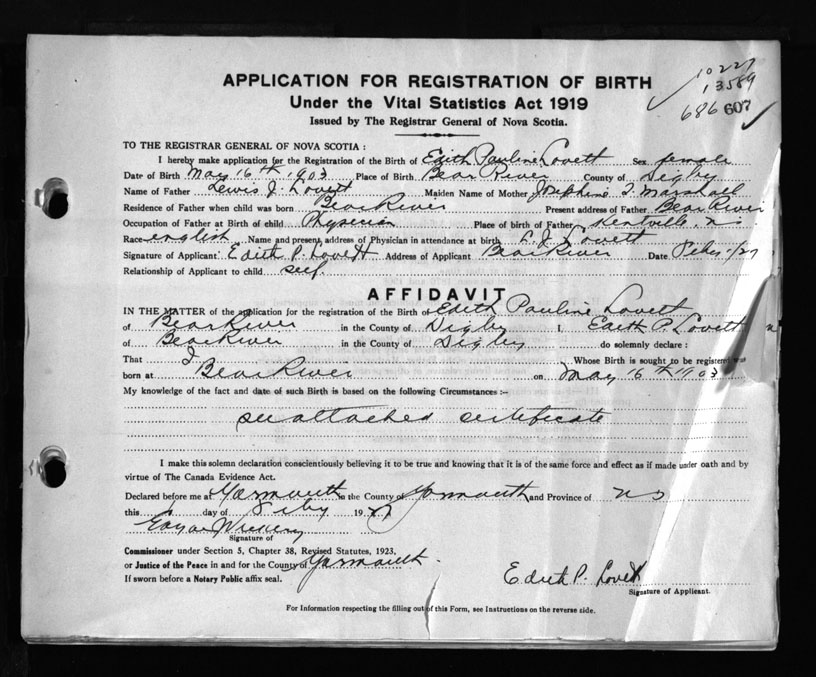 10227
13589
686607
APPLICATION FOR REGISTRATION OF BIRTH
Under the Vital Statistics Act 1919
Issued by The Registrar General of Nova Scotia.
TO THE REGISTRAR GENERAL OF NOVA SCOTIA :
I hereby make application for the Registration of the Birth of Edith Pauline Lovett Sex female
Date of Birth May 16th 1903 Place of Birth Bear River County of Digby
Name of Father Lewis J. Lovett Maiden Name of Mother Josephine T. Marshall
Residence of Father when child was born Bear River Present address of Father Bear River
Occupation of Father at Birth of child Physician Place of birth of Father Kentville, N.S.
Race english Name and present address of Physician in attendance at birth L. J. Lovett
Signature of Applicant Edith P. Lovett Address of Applicant Bear River Date
Relationship of Applicant to child self.
AFFIDAVIT
IN THE MATTER of the application for the registration of the Birth of Edith Pauline Lovett
of Bear River in the County of Digby I Edith P. Lovett
of Bear River in the County of Digby do solemnly declare :
That I Whose Birth is sought to be registered was
born at Bear River on May 16th 1903
My knowledge of the fact and date of such Birth is based on the following Circumstances :—
see attached certificate
I make this solemn declaration conscientiously believing it to be true and knowing that it is of the same force and effect as if made under oath and by
virtue of The Canada Evidence Act.
Declared before me at Yarmouth in the County of Yarmouth and Province of NS
this day of 1927
Signature of
Commissioner under Section 5, Chapter 38, Revised Statutes, 1923,
or Justice of the Peace in and for the County of Yarmouth.
If sworn before a Notary Public affix seal.
Edith P. Lovett
Signature of Applicant.
For Information respecting the filling out of this Form, see Instructions on the reverse side.